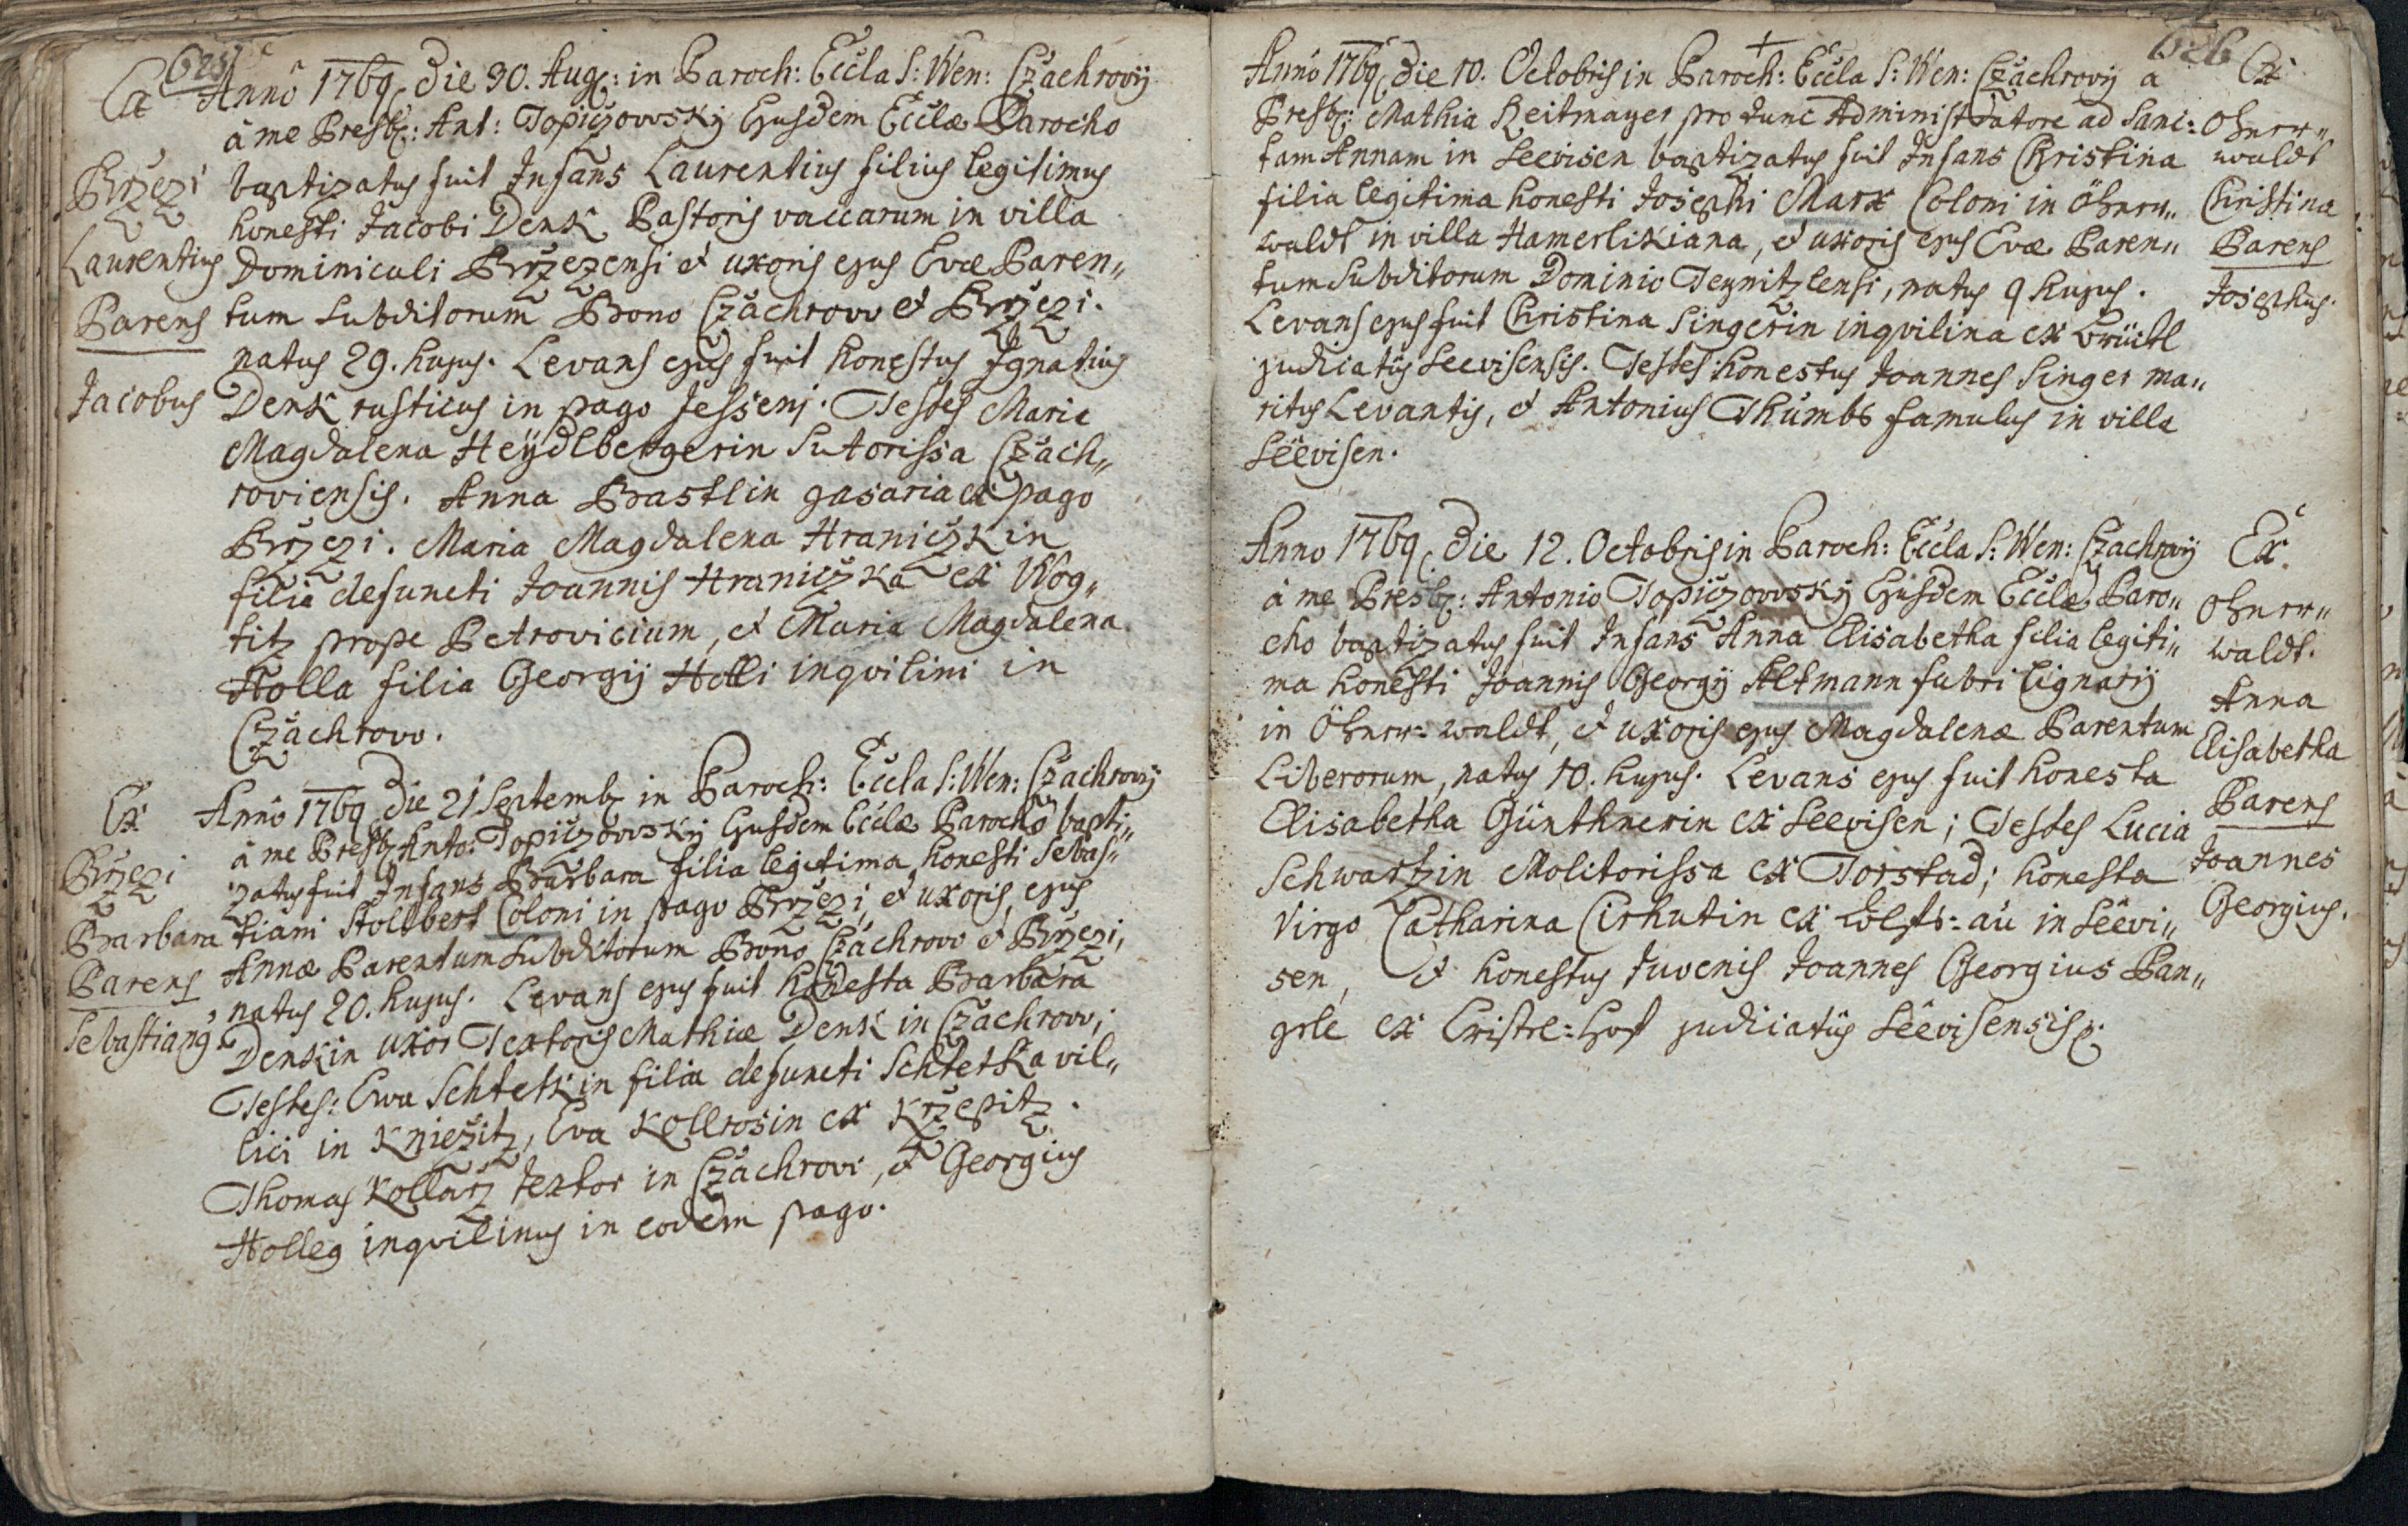 625
Ex
Brzezi
Laurentius
Parens
Jacobus
Anno 1769 die 30. Aug: in Paroch: Eccla S: Wen: Czachrovij
à me Presb: Ant: Topiczovvskij Ejusdem Ecclæ Parocho
baptizatus fuit Infans Laurentius filius legitimus
honesti Jacobi Denk Pastoris vaccarum in villa
Dominicali Brzezensi et uxoris ejus Evæ Paren„
tum Subditorum Bono Czachrovv et Brzezi.
natus 29. hujus. Levans ejus fuit honestus Ignatius
Denk rusticus in pago Jesseni. Testes Maria
Magdalena Heÿdlbergerin Sutorissa Czach„
roviensis. Anna Brastlin gasaria ex pago
Brzezi. Maria Magdalena Hraniczkin
filia defuncti Joannis Hraniczka ex Wog„
titz prope Petrovicium, et Maria Magdalena
Holla filia Georgij Holli inqvilini in
Czachrovv.
Ex
Brzezi
Barbara
Parens
Sebastiang
Anno 1769 die 21 Septemb in Paroch: Eccla S: Wen: Czachrovij
à me Presb Anto: Topiczovvskij Ejusdem Ecclæ Parocho bapti„
zatus fuit Infans Barbara filia legitima honesti Sebas„
tiani Stollbert Coloni in pago Brzezi, et uxoris ejus
Annæ Parentum Subditorum Bono Czachrovv et Brzezi,
natus 20. hujus. Levans ejus fuit honesta Barbara
Denkin uxor Textoris Mathiæ Denk in Czachrovv;
Testes: Ewa Schtetkin filia defuncti Schtetka vil„
lici in Kniežitz, Eva Kollrosin ex Krzepitz.
Thomas Kollarz textor in Czachrovv, et Georgius
Holleg inqvilinus in eodem pago.
626
Anno 1769 die 10. Octobris in Paroch: Eccla S: Wen: Czachrovij a
Presb: Mathia Reitmayer pro tunc Administratore ad Sanc:
tam Annam in Seevisen baptizatus fuit Infans Christina
filia legitima honesti Josephi Marx Coloni in Öhnrn„
waldt in villa Hamerlikiana, et uxoris ejus Evæ Paren„
tum Subditorum Dominio Teynitzlensi, natus 9 hujus.
Levans ejus fuit Christina Singerin inqvilina ex brückl
judiciatûs Seevisensis. Testes: honestus Joannes Singer ma„
ritus Levantis, et Antonius Thumbs famulus in villa
Seëvisen.
Ex
Ohnrn„
waldt
Christina
Parens
Josephus.
Anno 1769 die 12. Octobris in Paroch: Eccla S: Wen: Czachrovij
à me Presb: Antonio Topiczovvskij Ejusdem Ecclæ Paro„
cho baptizatus fuit Infans Anna Elisabetha filia legiti„
ma honesti Joannis Georgij Altmann fabri lignarij
in Öhnrn: waldt, et uxoris ejus Magdalenæ Parentum
Liberorum, natus 10. hujus. Levans ejus fuit honesta
Elisabetha Günthnerin ex Seevisen; Testes Lucia
Schwartzin Molitorissa ex Torstad; honesta
Virgo Catharina Cirhutin ex Wolfs: au in Seëvi„
sen, et honestus Juvenis Joannes Georgius Pan„
grle ex Eristre: Hof judiciatûs Seëvisensis.
Ex
Ohnrn„
waldt.
Anna
Elisabetha
Parens
Joannes
Georgius.